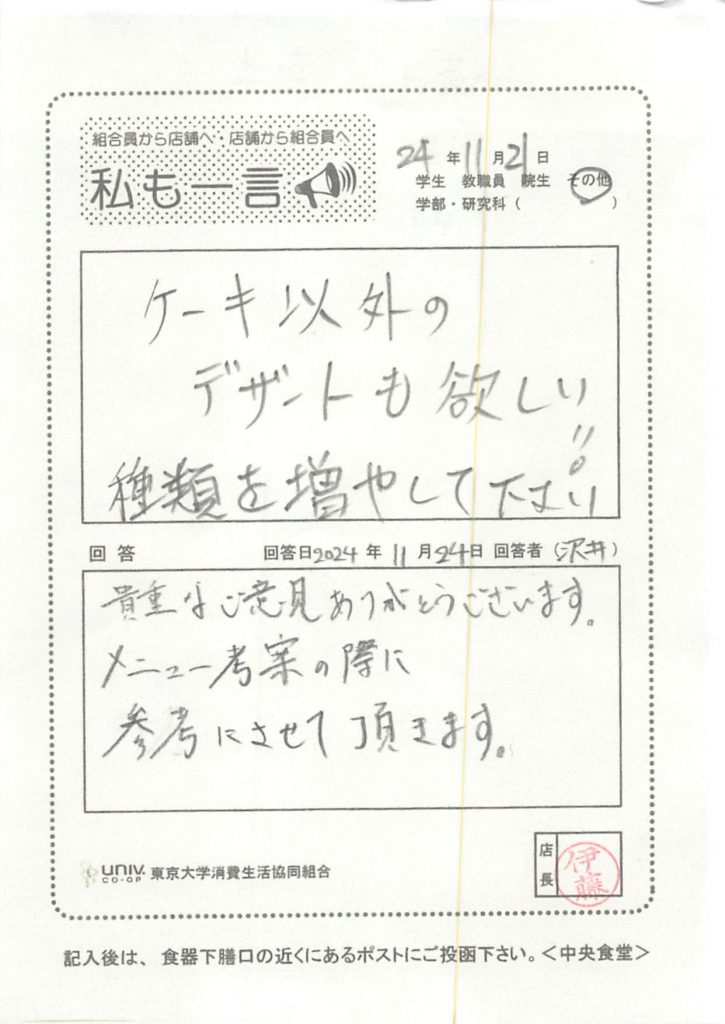 組合員から店舗へ・店舗から組合員へ
私も一言
24年11月21日
学生 教職員 院生 その他
学部・研究科（ ）
ケーキ以外の
デザートも欲しい!!
種類を増やして下さい
回答 回答日2024年11月24日 回答者（沢井）
貴重なご意見ありがとうございます。
メニュー考案の際に
参考にさせて頂きます。
UNIV. CO-OP 東京大学消費生活協同組合
店長 伊藤
記入後は、食器下膳口の近くにあるポストにご投函下さい。＜中央食堂＞